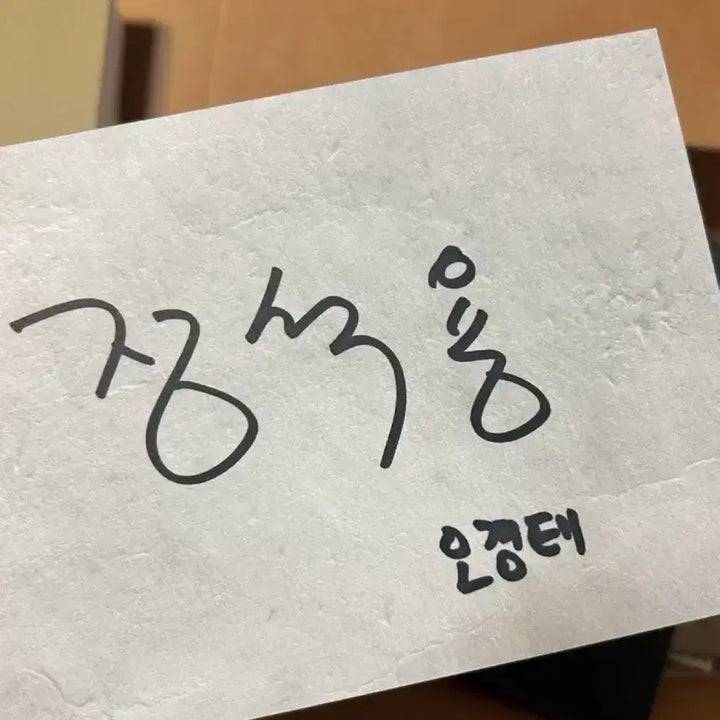 정석용
오경태